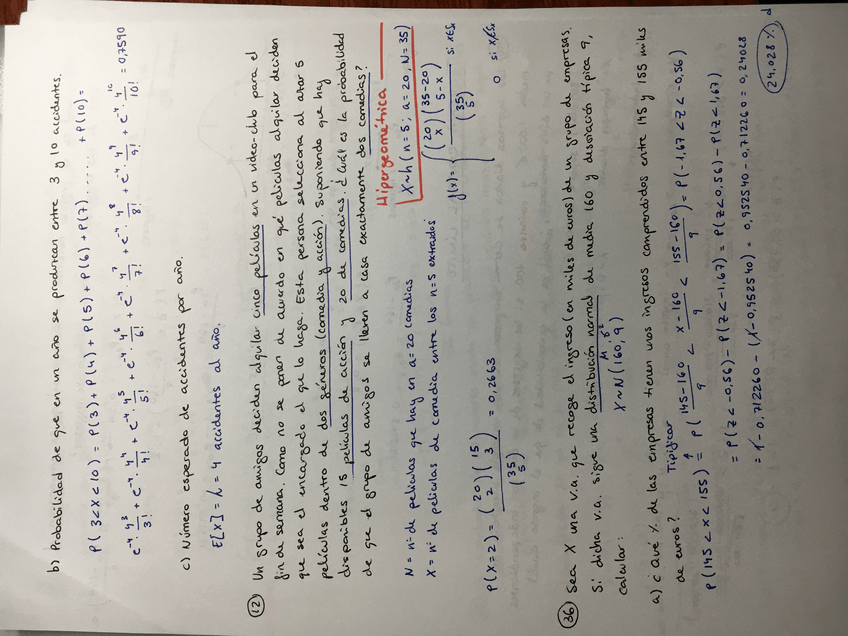 b) Probabilidad de que en un año se produzcan entre 3 y 10 accidentes.
P(3<X<10) = P(3) + P(4) + P(5) + P(6) + P(7) ...... + P(10) =
e^-4 · 4^3/3! + e^-4 · 4^4/4! + e^-4 4^5/5! + e^-4 · 4^6/6! + e^-4 4^7/7! + e^-4 · 4^8/8! + e^-4 · 4^9/9! + e^-4 · 4^10/10! = 0,7590
c) Número esperado de accidentes por año.
E[X] = λ = 4 accidentes al año.
(12) Un grupo de amigos deciden alquilar cinco películas en un video-club para el
fin de semana. Como no se ponen de acuerdo en qué películas alquilar deciden
que sea el encargado el que lo haga. Esta persona selecciona al azar 5
películas dentro de dos géneros (comedia y acción). Suponiendo que hay
disponibles 15 películas de acción y 20 de comedias, ¿Cuál es la probabilidad
de que el grupo de amigos se lleven a casa exactamente dos comedias?
Hipergeométrica
N = nº de películas que hay en a=20 comedias
X ~ h (n=5; a=20, N=35)
X = nº de películas de comedia entre las n=5 extraídas
f(x) = { (20 x) (35-20 5-x) / (35 5) si x∈Sx
0 si x∉Sx
P(X=2) = (20 2) (15 3) / (35 5) = 0,2663
(36) Sea X una v.a. que recoge el ingreso (en miles de euros) de un grupo de empresas.
Si dicha v.a. sigue una distribución normal de media 160 y desviación típica 9,
calcular:
μ σ²
X ~ N (160, 9)
a) ¿Qué % de las empresas tienen unos ingresos comprendidos entre 145 y 155 miles
de euros?
Tipificar
P(145 < x < 155) = P( 145-160/9 < x-160/9 < 155-160/9 ) = P(-1,67 < z < -0,56)
= P(z < -0,56) - P(z < -1,67) = P(z < 0,56) - P(z < 1,67)
= 1 - 0,712260 - (1 - 0,952540) = 0,952540 - 0,712260 = 0,24028
24,028 %